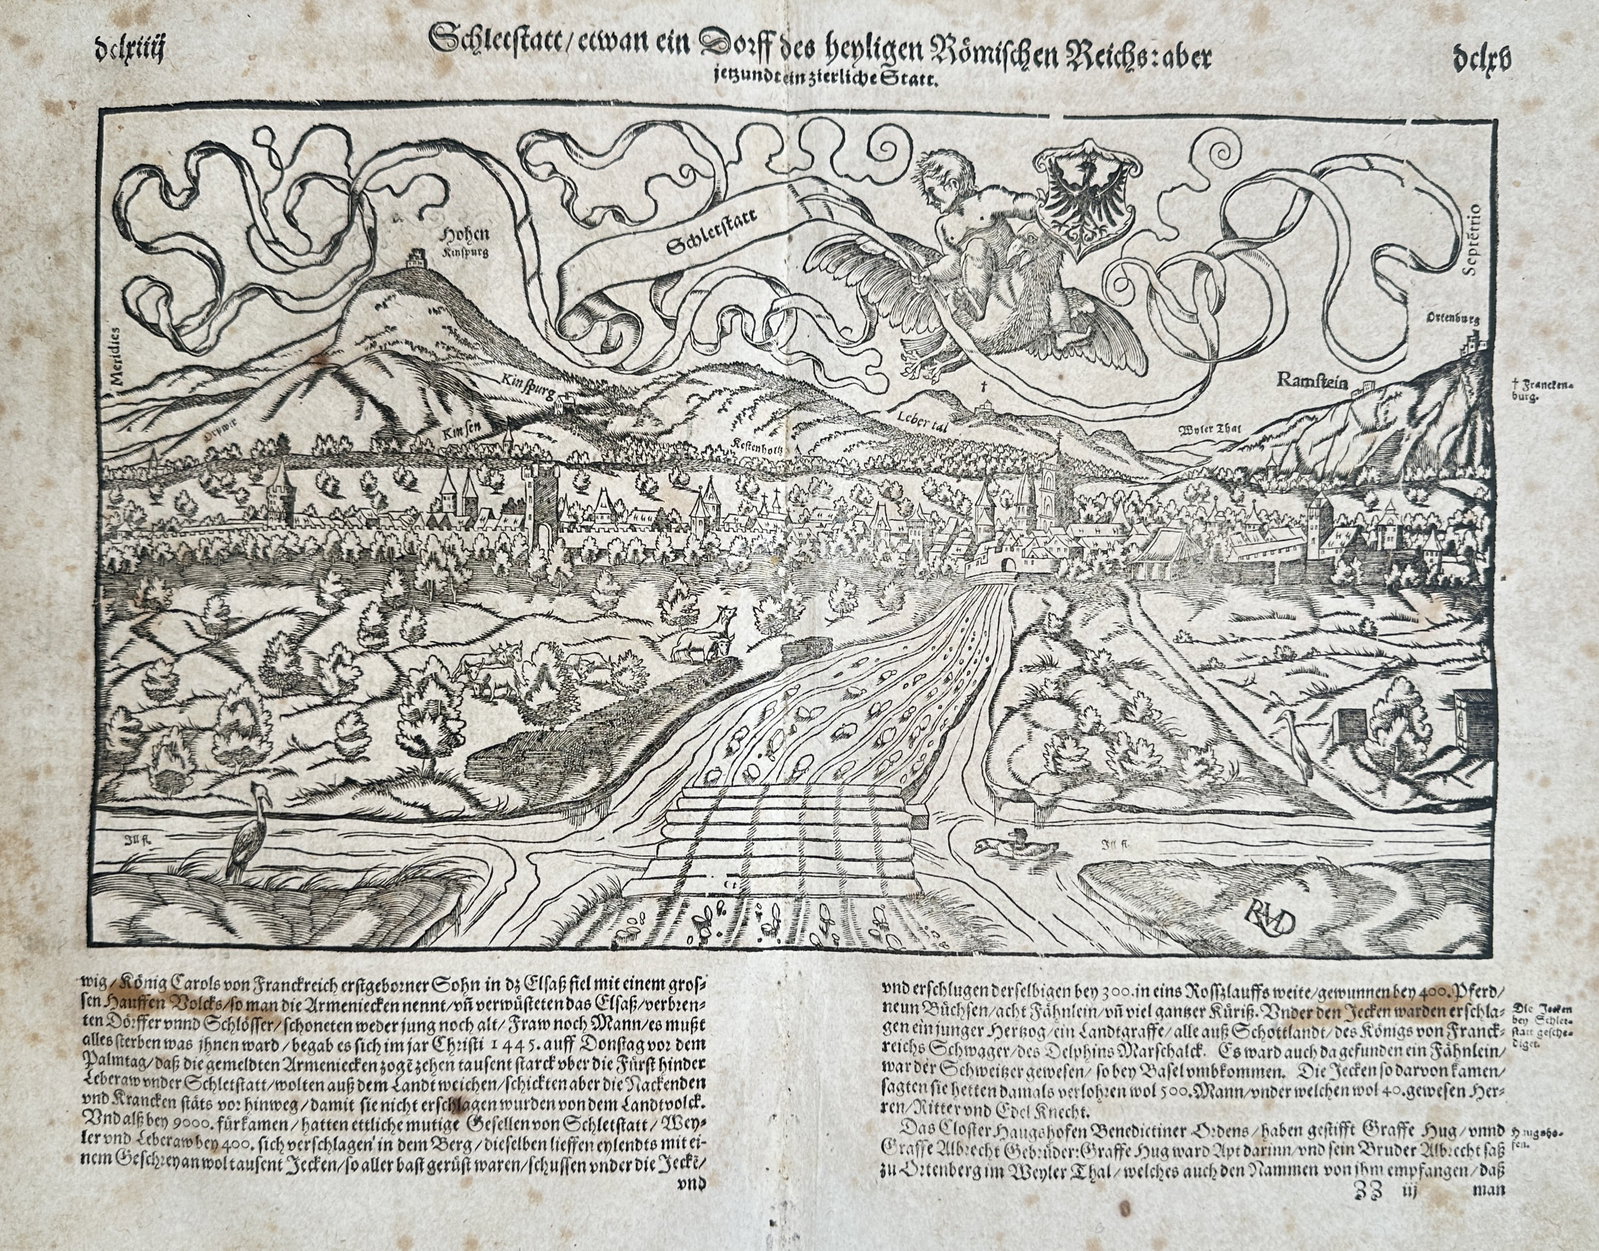 dclxiiij
Schletstatt/ etwan ein Dorff des heyligen Römischen Reichs: aber
jetzundt ein zierliche Statt.
dclxv
Schletstatt
Hohen
Kinspurg
Septētrio
Meridies
Ortenburg
Ramstein
† Francken-
burg.
Kinspurg
†
Lebertal
Wyler Thal
Kinsen
Kestenholtz
Ill fl.
Ill fl.
RMD
wig/ König Carols von Franckreich erstgeborner Sohn in dz Elsaß fiel mit einem gros-
sen Hauffen Volcks/ so man die Armeniecken nennt/ vñ verwüsteten das Elsaß/ verbren-
ten Dörffer vnnd Schlösser/ schoneten weder jung noch alt/ Fraw noch Mann/ es mußt
alles sterben was ihnen ward/ begab es sich im jar Christi 1445. auff Donstag vor dem
Palmtag/ daß die gemeldten Armeniecken zogē zehen tausent starck vber die Fürst hinder
Leberaw vnder Schletstatt/ wolten auß dem Landt weichen/ schickten aber die Nackenden
vnd Krancken stäts vor hinweg/ damit sie nicht erschlagen wurden von dem Landvolck.
Vnd alß bey 9000. fürkamen/ hatten ettliche mutige Gesellen von Schletstatt/ Wey-
ler vnd Leberaw bey 400. sich verschlagen in dem Berg/ dieselben lieffen eylendts mit ei-
nem Geschrey an wol tausent Jecken/ so aller bast gerüst waren/ schussen vnder die Jeckē/
vnd
vnd erschlugen derselbigen bey 300. in eins Rossz lauffs weite/ gewunnen bey 400. Pferd/
neun Büchsen/ acht Fähnlein/ vñ viel gantzer Küriß. Vnder den Jecken warden erschla-
gen ein junger Hertzog/ ein Landtgraffe/ alle auß Schottlandt/ des Königs von Franck-
reichs Schwager/ des Delphins Marschalck. Es ward auch da gefunden ein Fähnlein/
war der Schweitzer gewesen/ so bey Basel vmbkommen. Die Jecken so darvon kamen/
sagten sie hetten damals verlohren wol 500. Mann/ vnder welchen wol 40. gewesen Her-
ren/ Ritter vnd Edel Knecht.
Das Closter Haugshofen Benedictiner Ordens/ haben gestifft Graffe Hug/ vnnd
Graffe Albrecht Gebrüder: Graffe Hug ward Apt darinn/ vnd sein Bruder Albrecht saß
zu Ortenberg im Weyler Thal/ welches auch den Nammen von jhm empfangen/ daß
ZZ iij man
Die Jecken
bey Schlet-
statt gesche-
diget.
Haugsho-
fen.